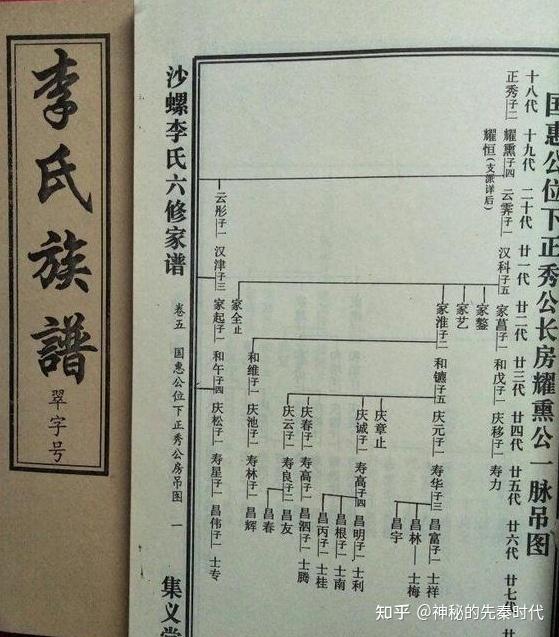 李氏族譜
翠字号
国惠公位下正秀公长房耀熏公一脉吊图
十八代 十九代 二十代 廿一代 廿二代 廿三代 廿四代 廿五代 廿六代 廿七代
正秀子二 耀熏子四 云霁子一 汉科子五 家菖子一 和戊子一 庆移子一 寿力
耀恒(支派详后)
家鏊
家艺
家淮子二 和镳子五 庆元子一 寿华子三 昌富子一 士祥
昌林 士梅
昌宇
庆章止
庆诚子一 寿高子四 昌明子一 士利
昌根子一 士南
昌丙子一 士桂
庆春子一 寿高子一 昌泗子一 士腾
庆云子一 寿良子二 昌友
昌春
家全止
和维子一 庆池子一 寿林子二 昌辉
云彤子一 汉津子三 家起子一 和午子四 庆松子一 寿星子一 昌伟子一 士专
沙螺李氏六修家谱
卷五 国惠公位下正秀公房吊图 一
集义堂
知乎 @神秘的先秦时代